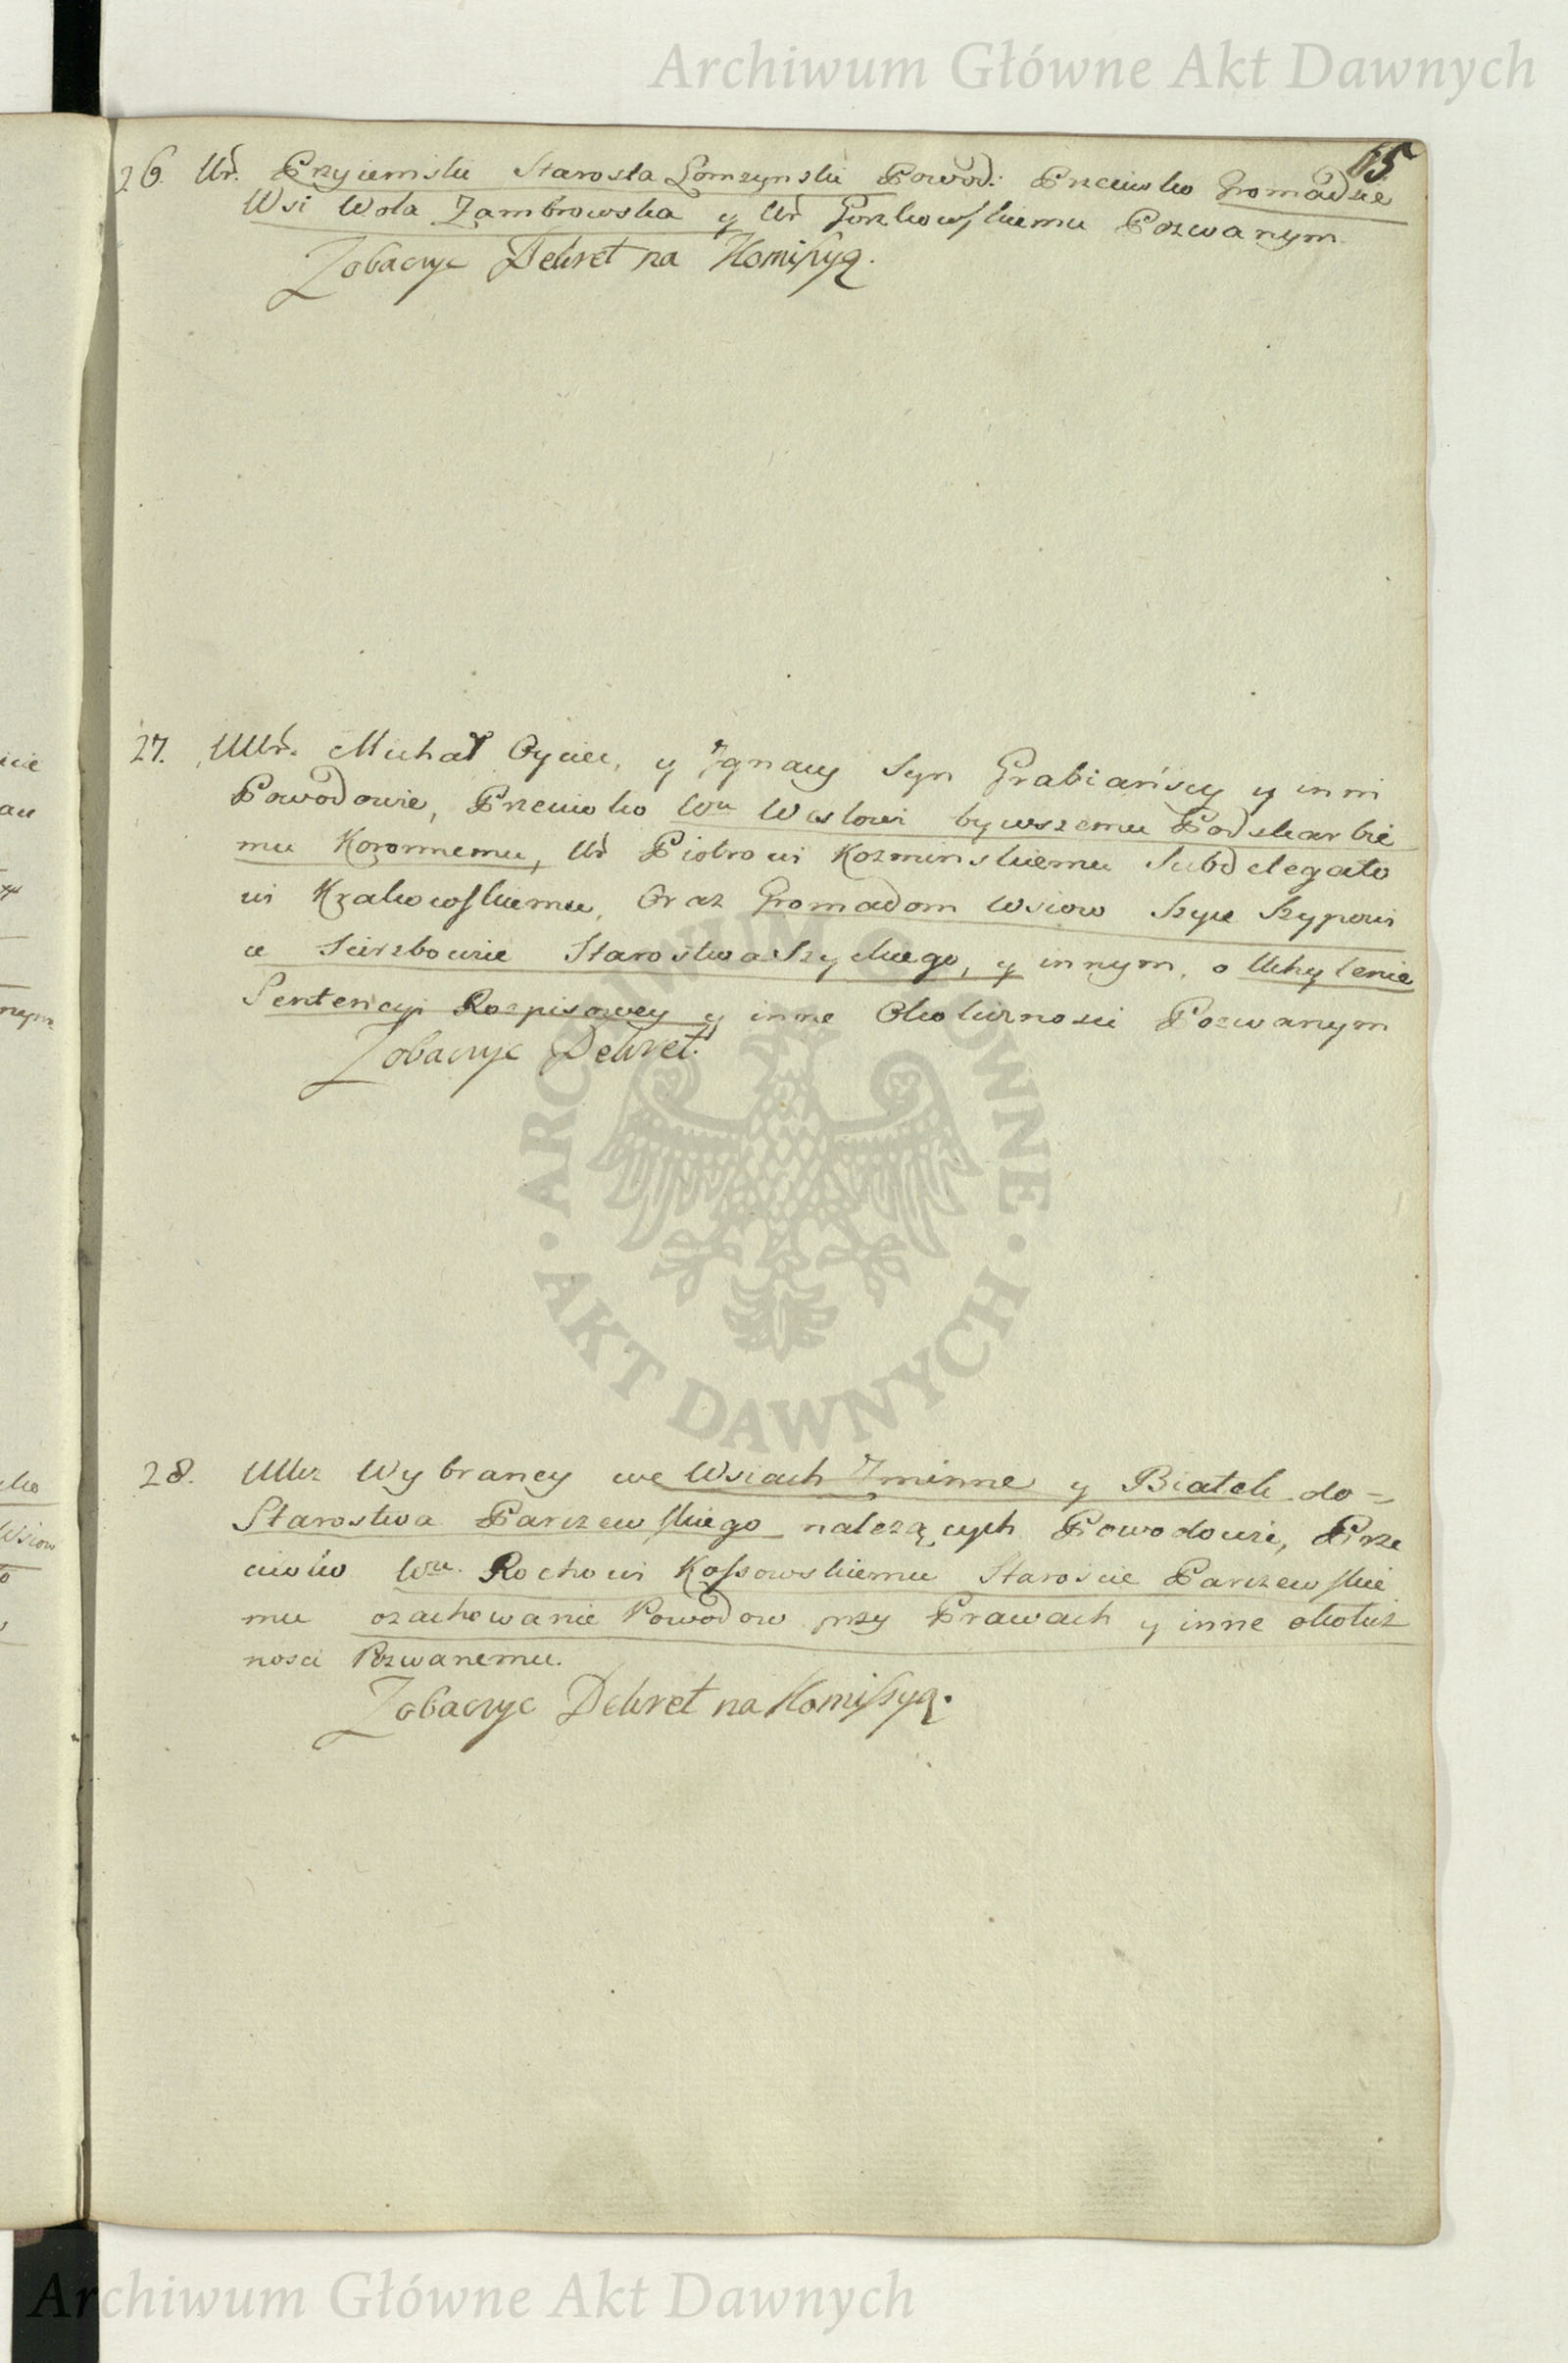 Archiwum Główne Akt Dawnych
65
26. Ur. Przyiemski Starosta Łomzynski Powod: Przeciwko Gromadzie
Wsi Wola Zambrowska y Ur Gorzkowskiemu Pozwanym.
Zobaczyc Dekret na Komissyą.
27. UUr. Michał Oyciec, y Ignacy Syn Grabiańscy y inni
Powodowie, Przeciwko Wu Weslowi bywszemu Podskarbie
mu Koronnemu, Ur Piotrowi Kozminskiemu Subdelegato
wi Krakowskiemu, Oraz Gromadom Wsiow Szyce Szypowi
ce Sierzbowie Starostwa Szyckiego, y innym, o Uchylenie
Sentencyi Rozpisowey y inne Okoliczności Pozwanym
Zobaczyc Dekret.
28. UUcz Wybrancy we Wsiach Zminne y Białek do-
Starostwa Parczewskiego nalezących Powodowie, Prze
ciwko Wu. Rochowi Kossowskiemu Staroscie Parczewskie
mu ozachowanie Powodow przy Prawach y inne okolicz
nosci Pozwanemu.
Zobaczyc Dekret na Komissyą.
ARCHIWUM GŁÓWNE AKT DAWNYCH
Archiwum Główne Akt Dawnych